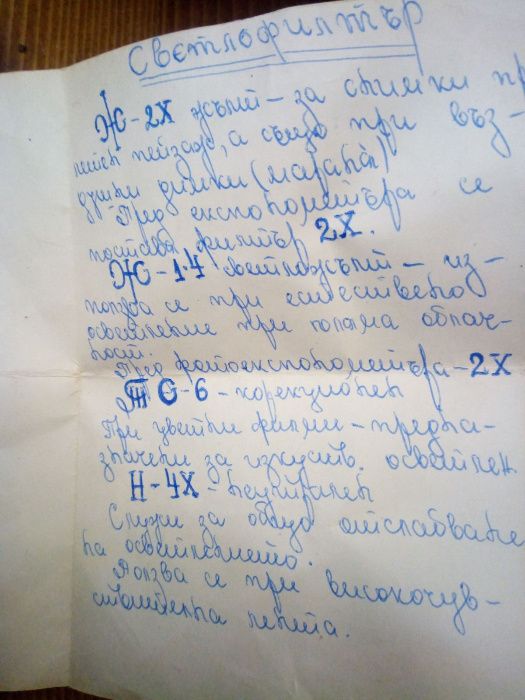 Светлофилтър
Ж-2Х жълт - за снимки пр
пейзаж, а също при въз-
душни димки (марань)
Пред експонометъра се
поставя филтър 2Х.
Ж-1.4 светложълт - из-
ползва се при естествено
осветление при голяма облач-
ност.
Пред фотоекспонометъра - 2Х
ПС-6 - корекционен
При цветни филми - предна-
значени за изкуств. осветлен.
Н-4Х - неутрален
Служи за общо отслабване
на осветлението.
Ползва се при високочув-
ствителна лента.